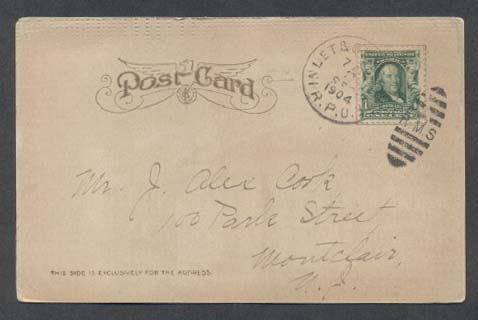 Post Card
R.P.O.
1904
R.M.S
Mr. J. Alex Cook
100 Park Street
Montclair,
N. J.
THIS SIDE IS EXCLUSIVELY FOR THE ADDRESS.